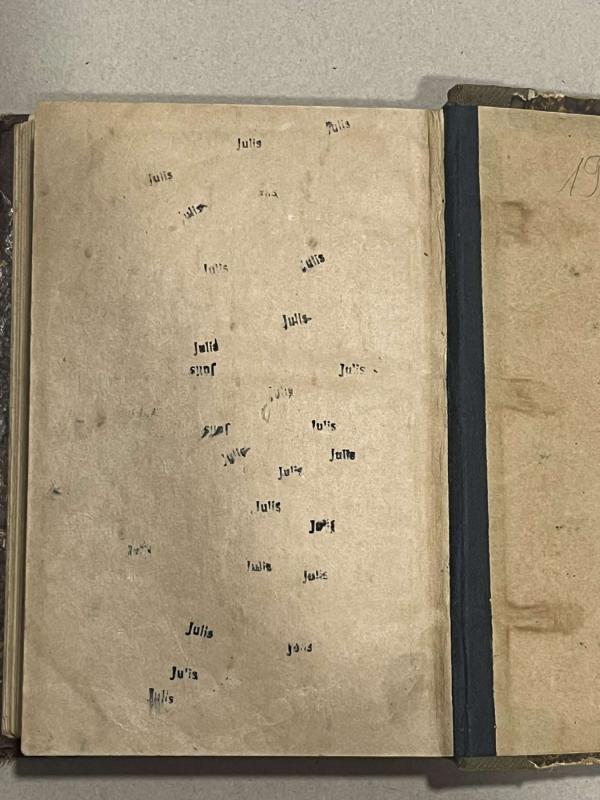 Julis
Julis
Julis
19
Julis
Julis
Julis
Julis
Julis
Julis
Julis
Julis
Julis
Julis
Julis
Julis
Julis
Julis
Julis
Julis
Julis
Julis
Julis
Julis
Julis